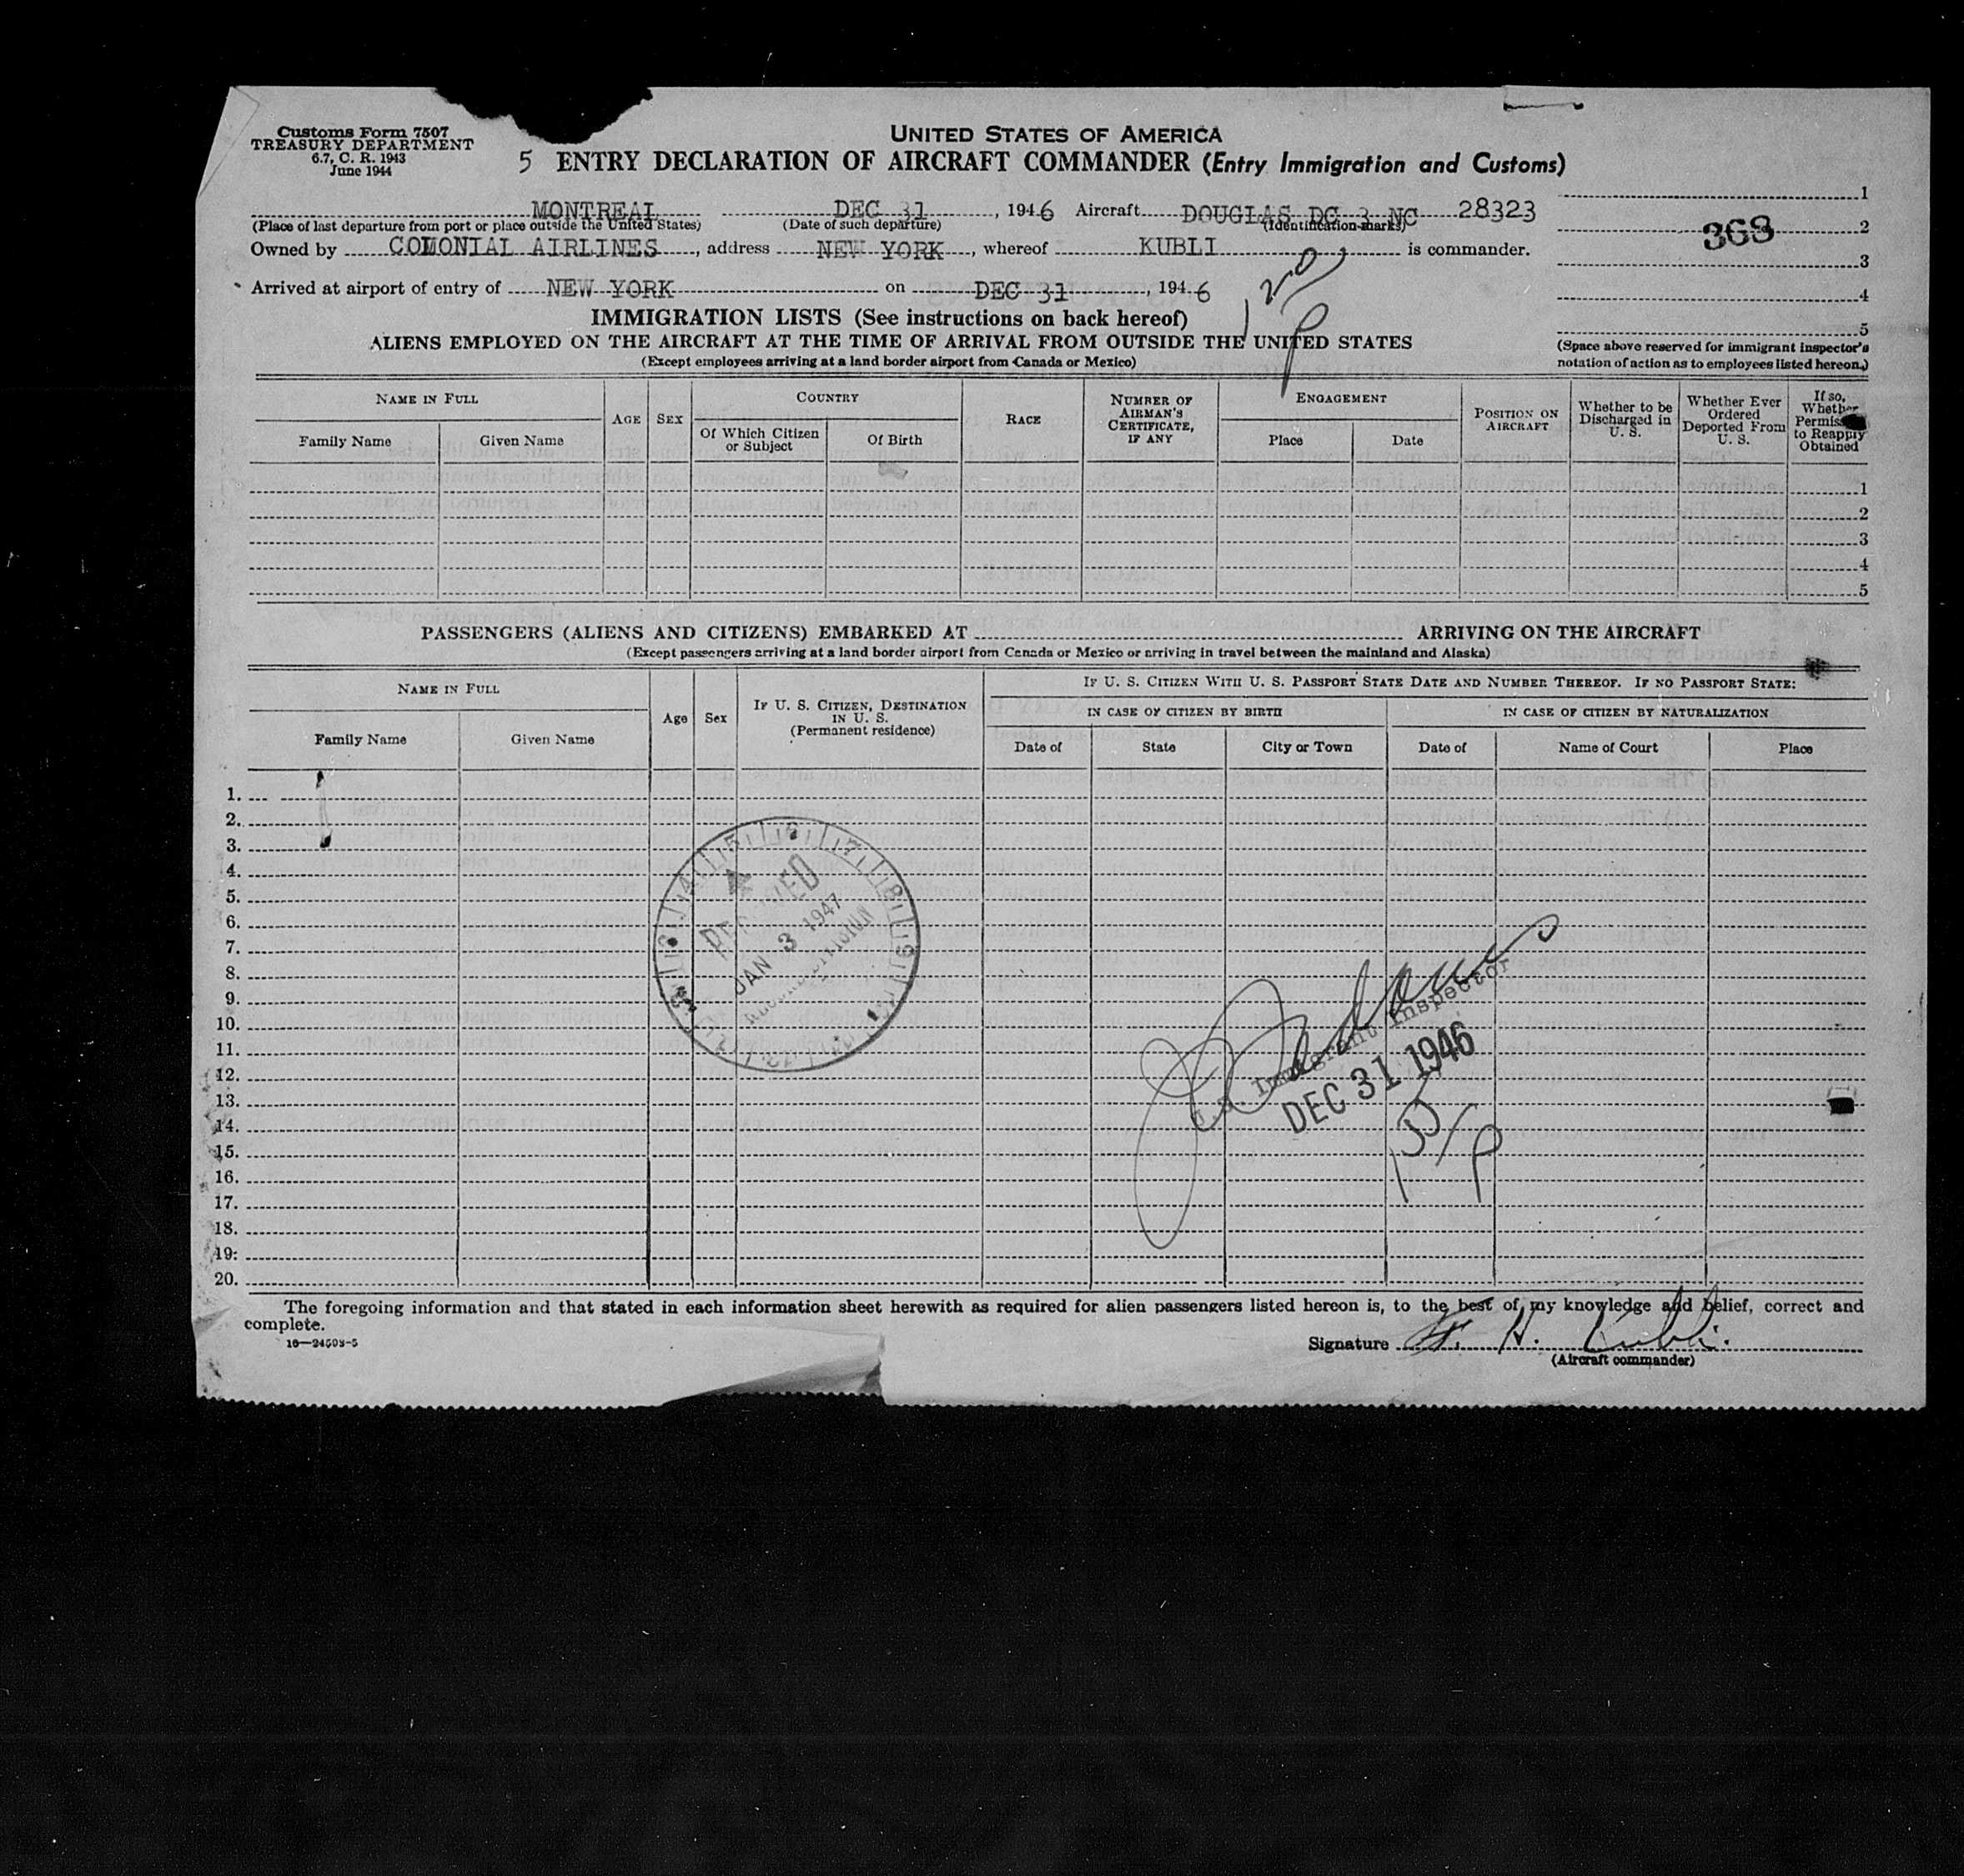 Customs Form 7507
TREASURY DEPARTMENT
6.7, C. R. 1943
June 1944
UNITED STATES OF AMERICA
5 ENTRY DECLARATION OF AIRCRAFT COMMANDER (Entry Immigration and Customs)
MONTREAL DEC 31, 1946 Aircraft DOUGLAS DC 3 NC 28323
(Place of last departure from port or place outside the United States) (Date of such departure) (Identification marks)
Owned by COLONIAL AIRLINES, address NEW YORK, whereof KUBLI is commander.
Arrived at airport of entry of NEW YORK on DEC 31, 1946
1
368 2
3
4
5
(Space above reserved for immigrant inspector's
notation of action as to employees listed hereon.)
IMMIGRATION LISTS (See instructions on back hereof)
ALIENS EMPLOYED ON THE AIRCRAFT AT THE TIME OF ARRIVAL FROM OUTSIDE THE UNITED STATES
(Except employees arriving at a land border airport from Canada or Mexico)
NAME IN FULL
Family Name Given Name
AGE SEX
COUNTRY
Of Which Citizen or Subject
Of Birth
RACE
NUMBER OF AIRMAN'S CERTIFICATE, IF ANY
ENGAGEMENT
Place Date
POSITION ON AIRCRAFT
Whether to be Discharged in U. S.
Whether Ever Ordered Deported From U. S.
If so, Whether to Reapply Obtained
1
2
3
4
5
PASSENGERS (ALIENS AND CITIZENS) EMBARKED AT ARRIVING ON THE AIRCRAFT
(Except passengers arriving at a land border airport from Canada or Mexico or arriving in travel between the mainland and Alaska)
NAME IN FULL
Family Name Given Name
Age Sex
IF U. S. CITIZEN, DESTINATION IN U. S.
(Permanent residence)
IF U. S. CITIZEN WITH U. S. PASSPORT STATE DATE AND NUMBER THEREOF. IF NO PASSPORT STATE:
IN CASE OF CITIZEN BY BIRTH IN CASE OF CITIZEN BY NATURALIZATION
Date of State City or Town Date of Name of Court Place
1.
2.
3.
4.
5.
6.
7.
8.
9.
10.
11.
12.
13.
14.
15.
16.
17.
18.
19.
20.
JAN 3 1947
U.S. Immigrant Inspector
DEC 31 1946
The foregoing information and that stated in each information sheet herewith as required for alien passengers listed hereon is, to the best of my knowledge and belief, correct and
complete.
16—24503-5
Signature F. H. Kubli.
(Aircraft commander)